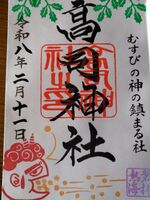 むすびの神の鎮まる社
高司神社
令和八年二月十一日